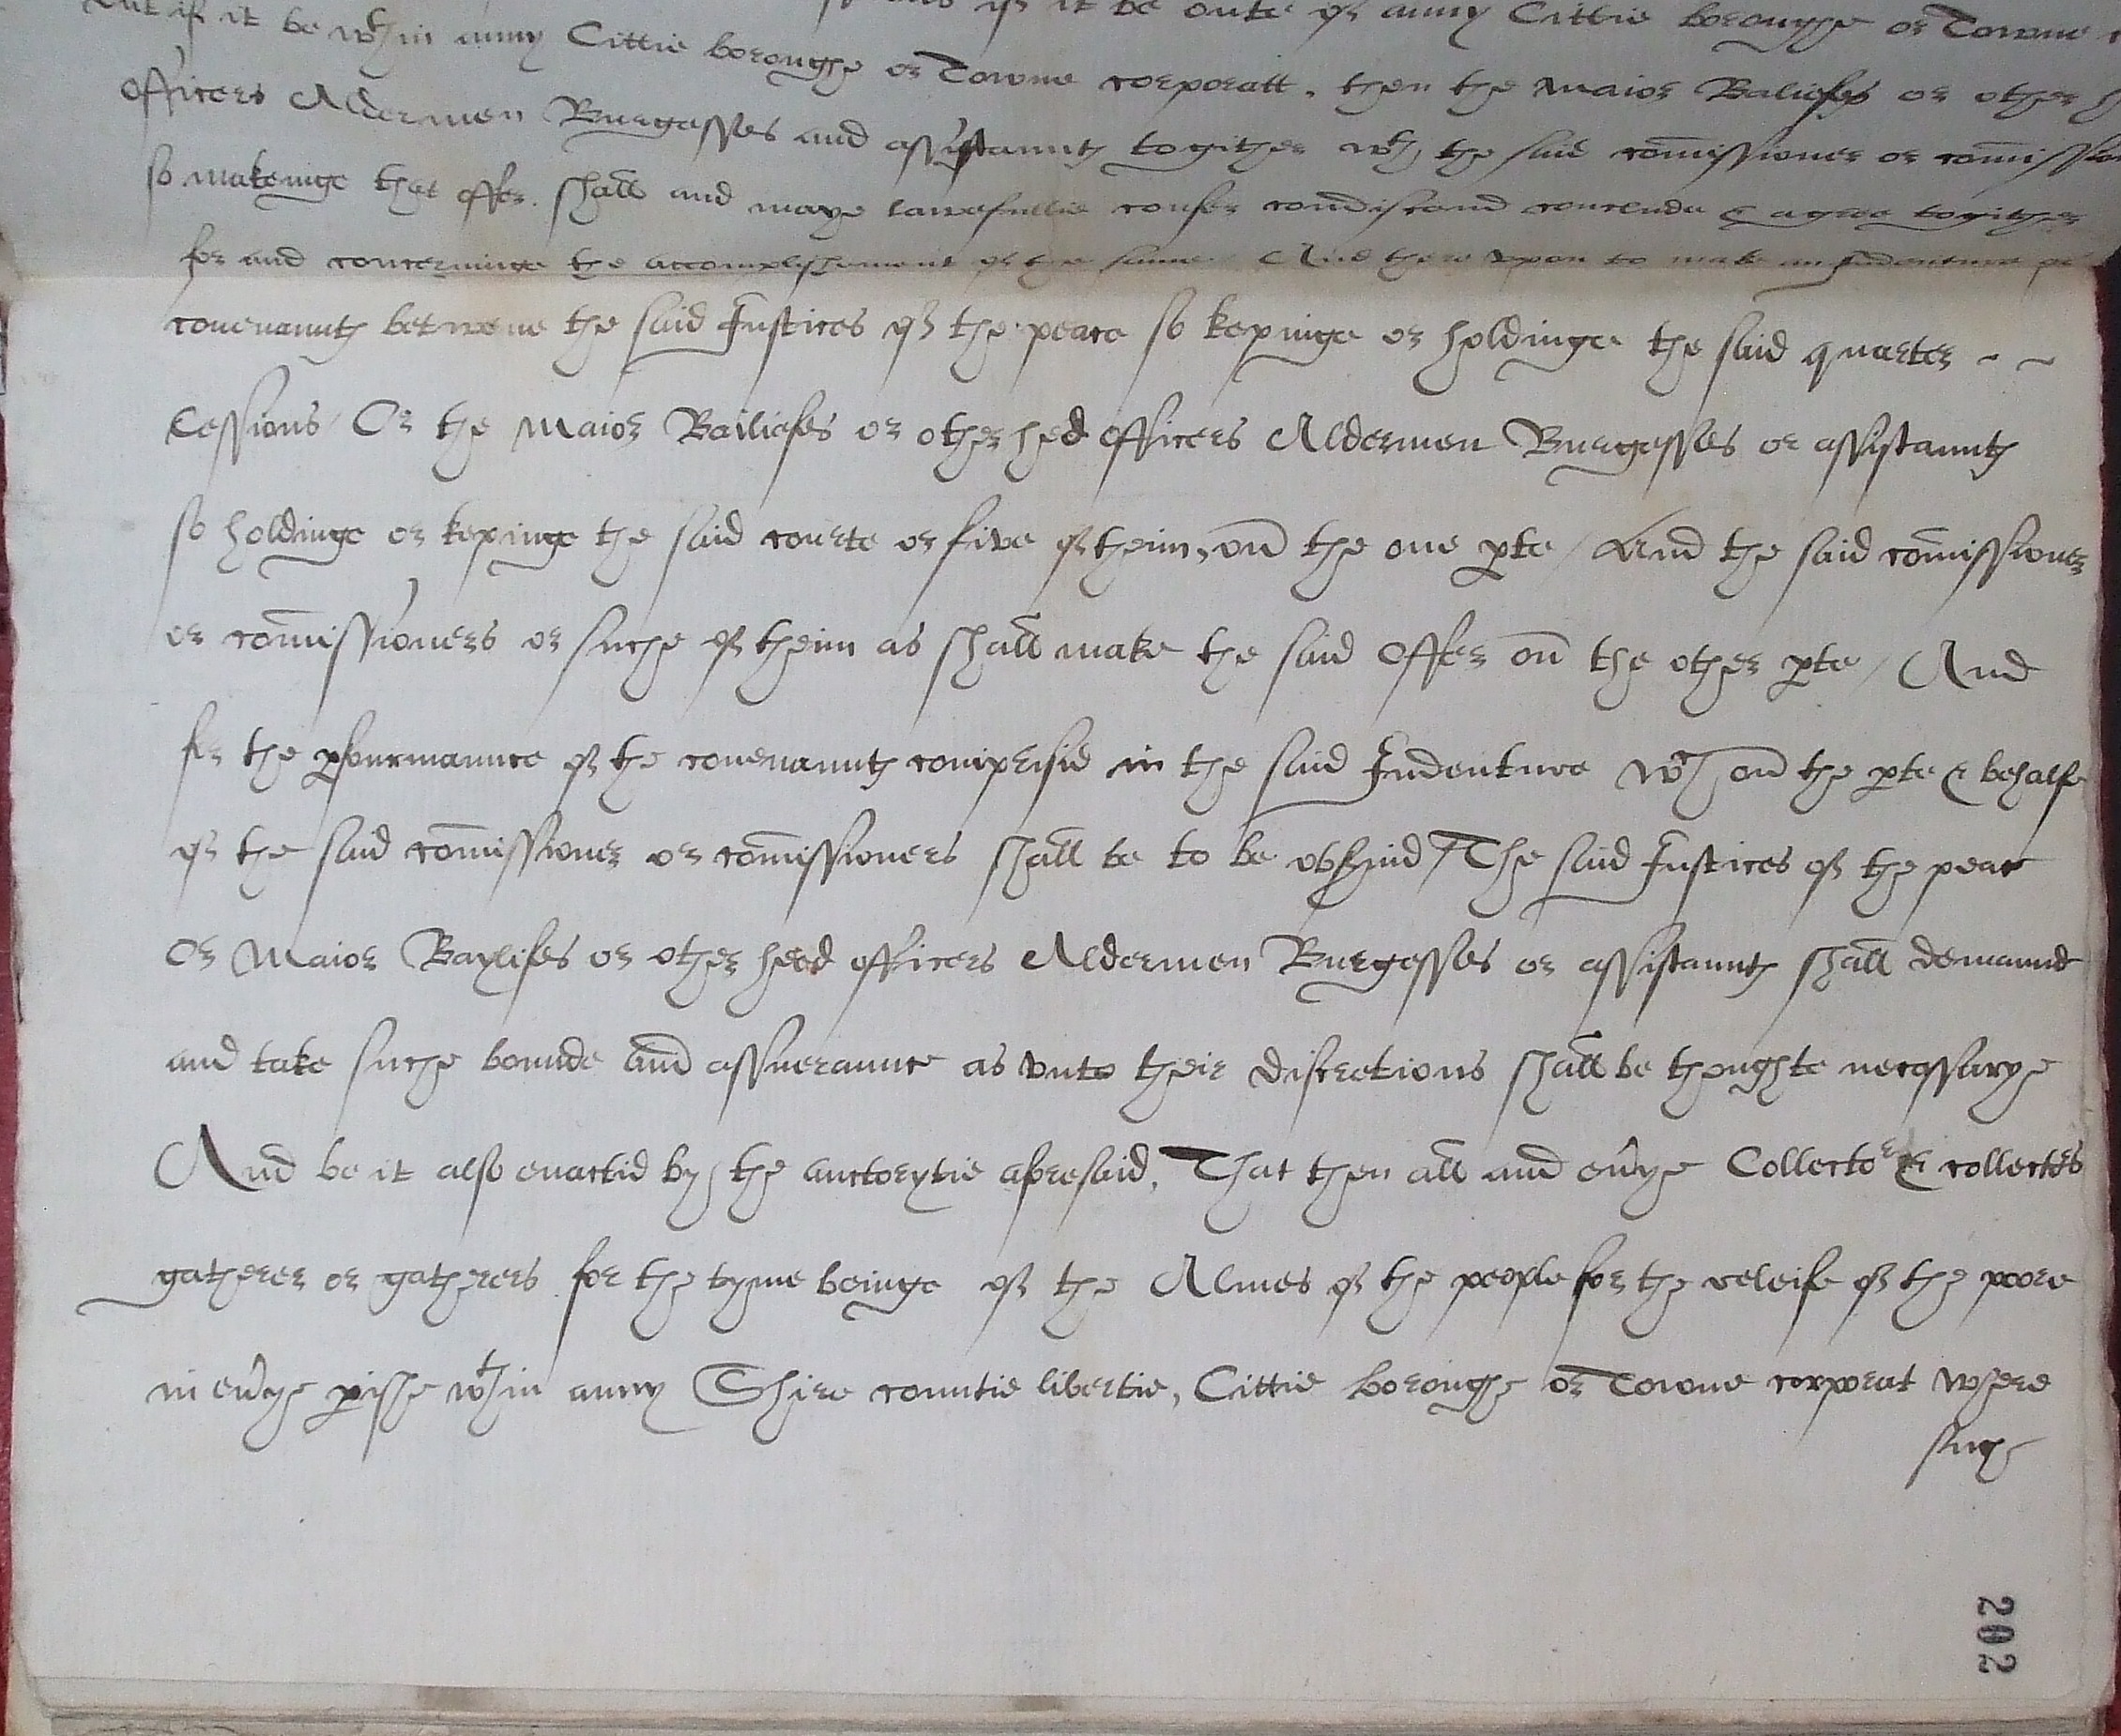 if it be oute of anny Cittie boroughe or Towne
but if it be wthin anny Cittie boroughe or Towne corporatt, then the Maior Baliefes or other
officers Aldermen Burgesses and assistauntꝭ togither wth the said com̄issioner or com̄ission
so makeinge that offer. shall and maye lawefullie confer condiscend conclude & agree togither
for and concerninge the accomplishement of the same And there upon to make an Indenture of
covenauntꝭ betwene the said Justices of the peace so kepinge or holdinge the said quarter - -
Cessions / Or the Maior Bailiefes or other hed officers Aldermen Burgesses or assistauntꝭ
so holdinge or kepinge the said courte or five of theim, on the one ꝑte / And the said com̄issioner
or com̄issioners or suche of theim as shall make the said offer on the other ꝑte / And
for the ꝑfourmaunce of the covenauntꝭ comprisid in the said Indenture wch on the ꝑte & behalfe
of the said com̄issioner or com̄issioners shall be to be obsʼvid / The said Justices of the peac
Or Maior Baylifes or other heed officers Aldermen Burgesses or assistauntꝭ shall demaund
and take suche bounde and assueraunce as vnto their discretions shall be thoughte necessarye
And be it also enactid by the auctorytie aforesaid, That then all and eūye Collector & collectors
gatherer or gatherers for the tyme beinge of the Almes of the people for the releife of the poore
in eūye ꝑishe wthin anny Shire countie libertie, Cittie boroughe or Towne corporat where
such
202